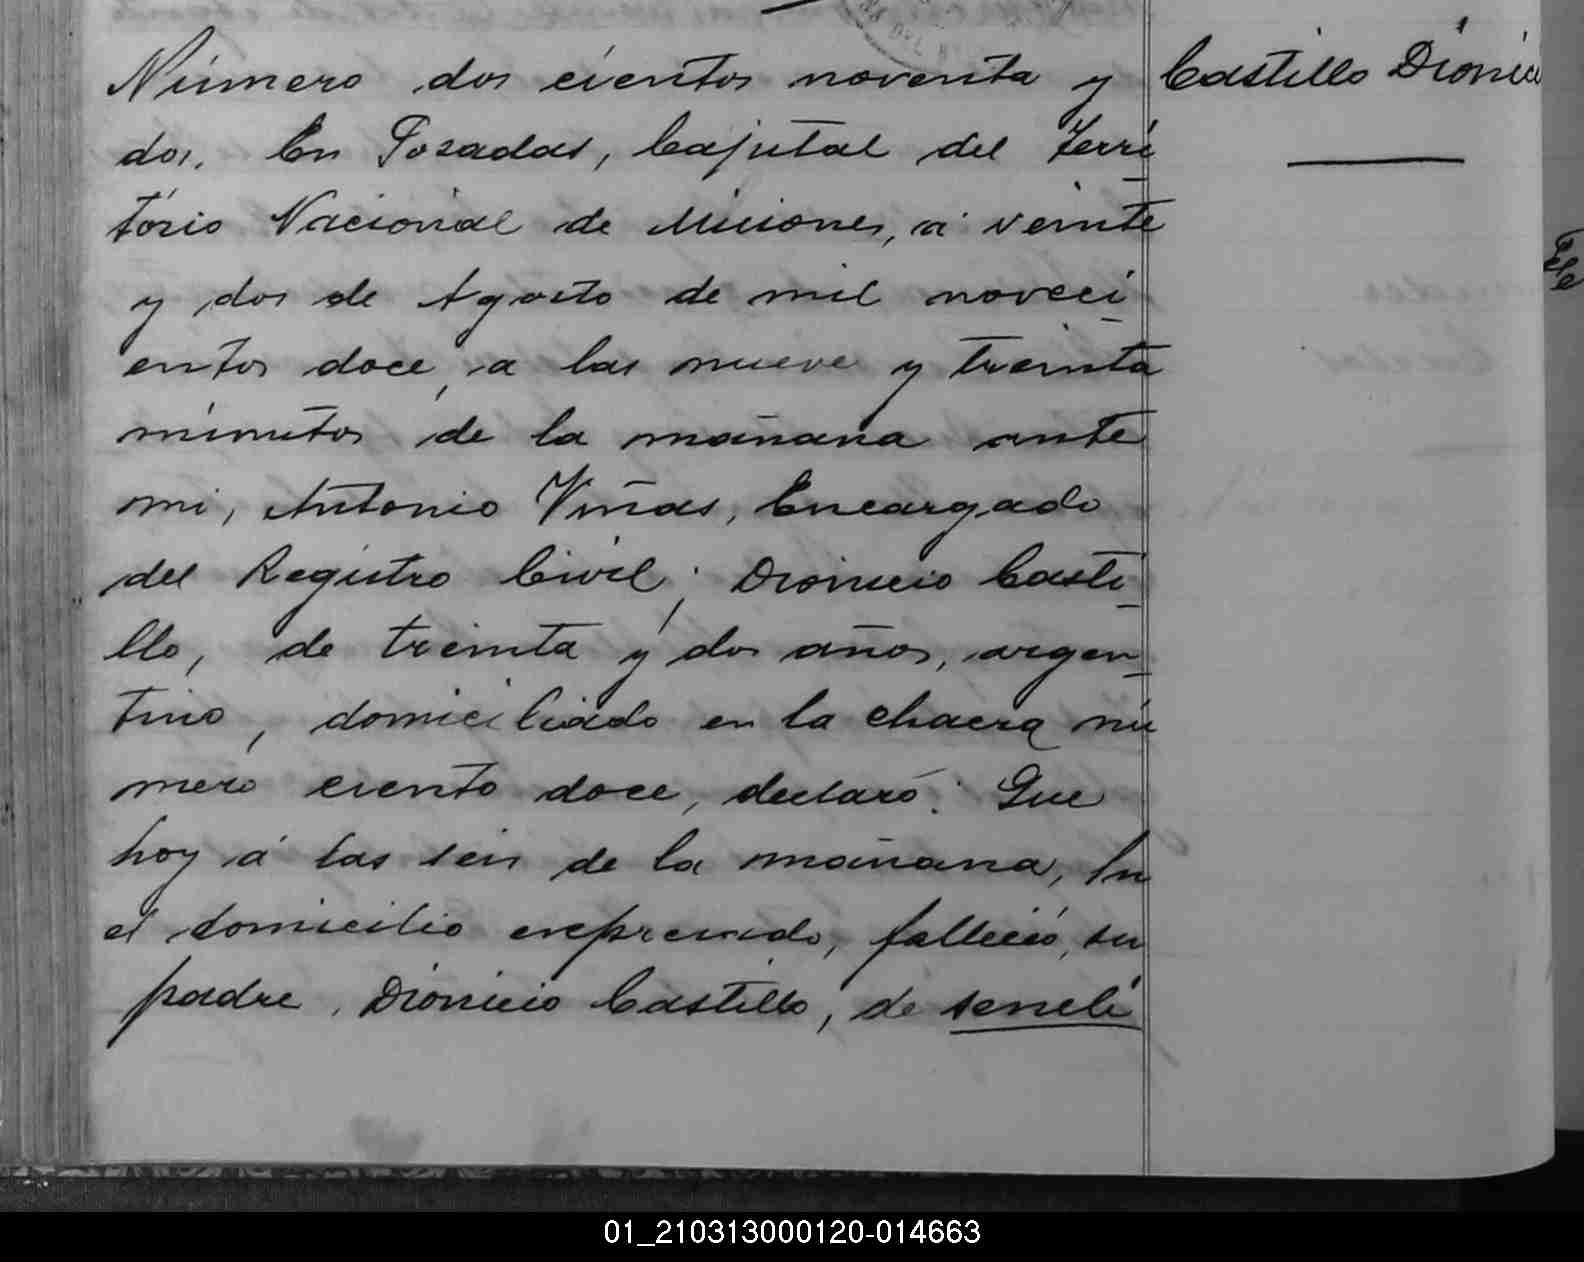 Número dos cientos noventa y
dos. En Posadas, Capital del Terri
tório Nacional de Misiones, á veinte
y dos de Agosto de mil noveci
entos doce, a las nueve y treinta
minutos de la mañana ante
mi, Antonio Viñas, Encargado
del Registro Civil; Dionicio Casti
llo, de treinta y dos años, argen
tino, domiciliado en la chacra nú
mero ciento doce, declaró: Que
hoy á las seis de la mañana, En
el domicilio expresado, falleció, su
padre, Dionicio Castillo, de seneli
Castillo Dionici
01_210313000120-014663